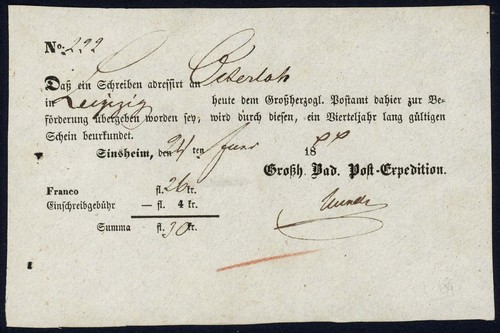 No: 222
Daß ein Schreiben adressirt an Osterloh
in Leipzig heute dem Großherzogl. Postamt dahier zur Be-
förderung übergeben worden sey, wird durch diesen, ein Vierteljahr lang gültigen
Schein beurkundet.
Sinsheim, den 24 ten Juni 18
Großh. Bad. Post-Expedition.
Franco fl. 26 kr.
Einschreibgebühr — fl. 4 kr.
Summa fl. 30 kr.